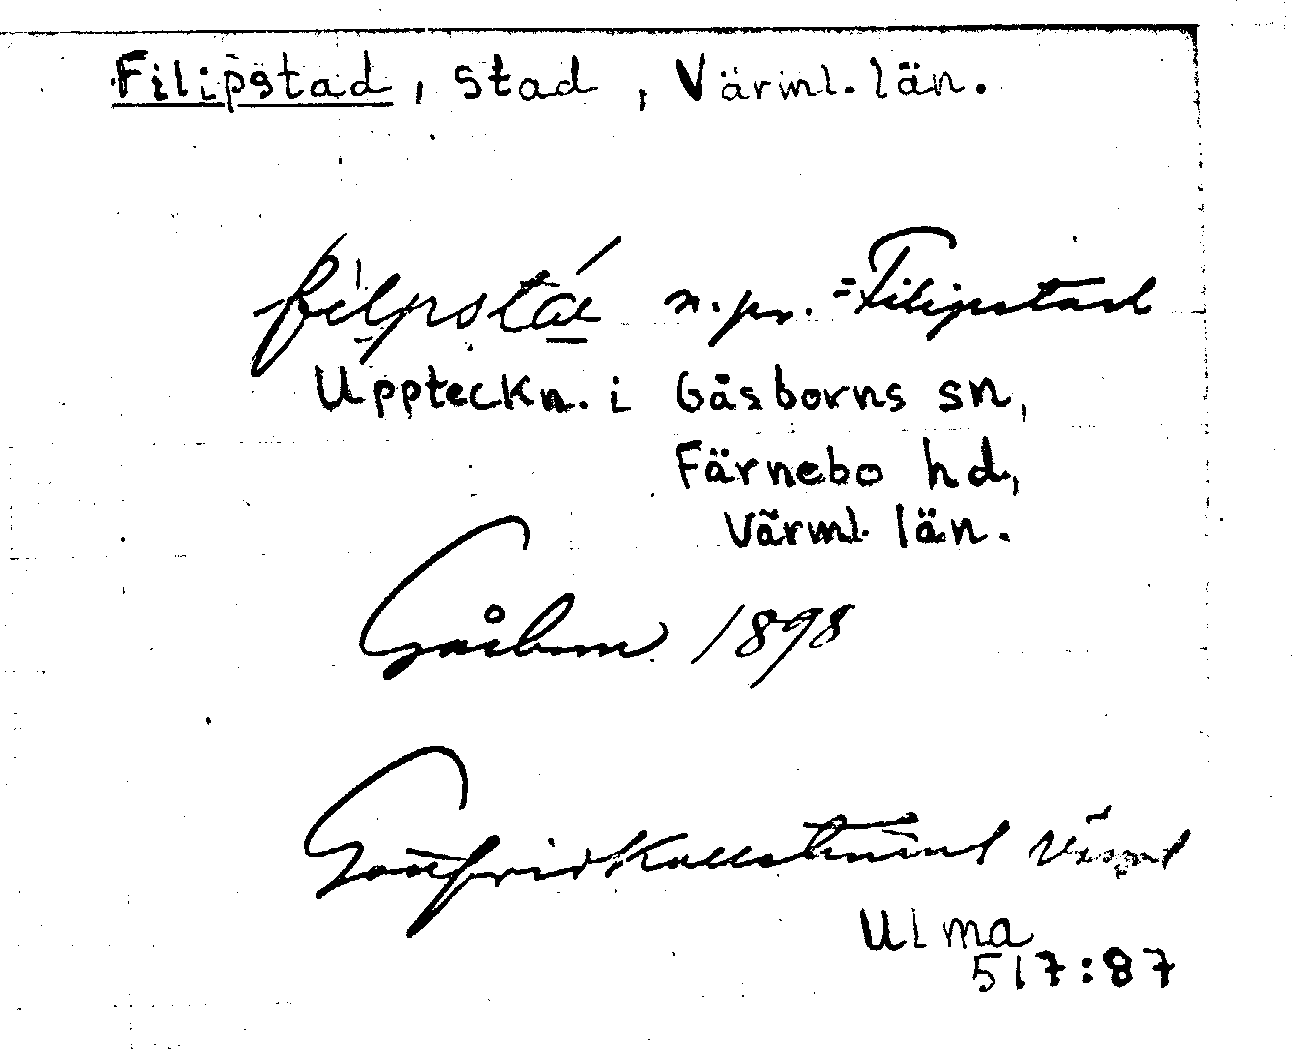 Filipstad, stad, Värml. län.
filpstá n. pr. = Filipstad
Uppteckn. i Gåsborns sn,
Färnebo hd,
Värml. län.
Gåsborn 1898
Gottfrid Kallstenius Värml
Ulma
517:87